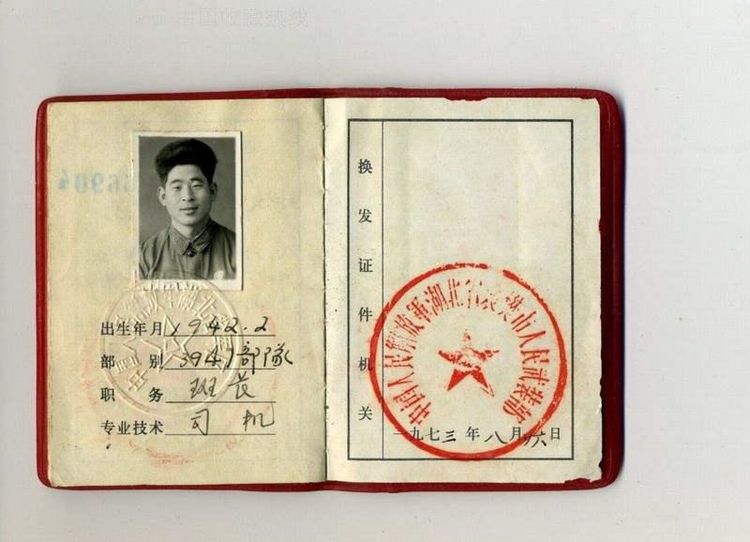 出生年月 1942.2
部 别 3941部隊
职 务 班长
专业技术 司机
换发证件机关
中国人民解放军湖北省 市人民武装部
一九七三年八月 六日